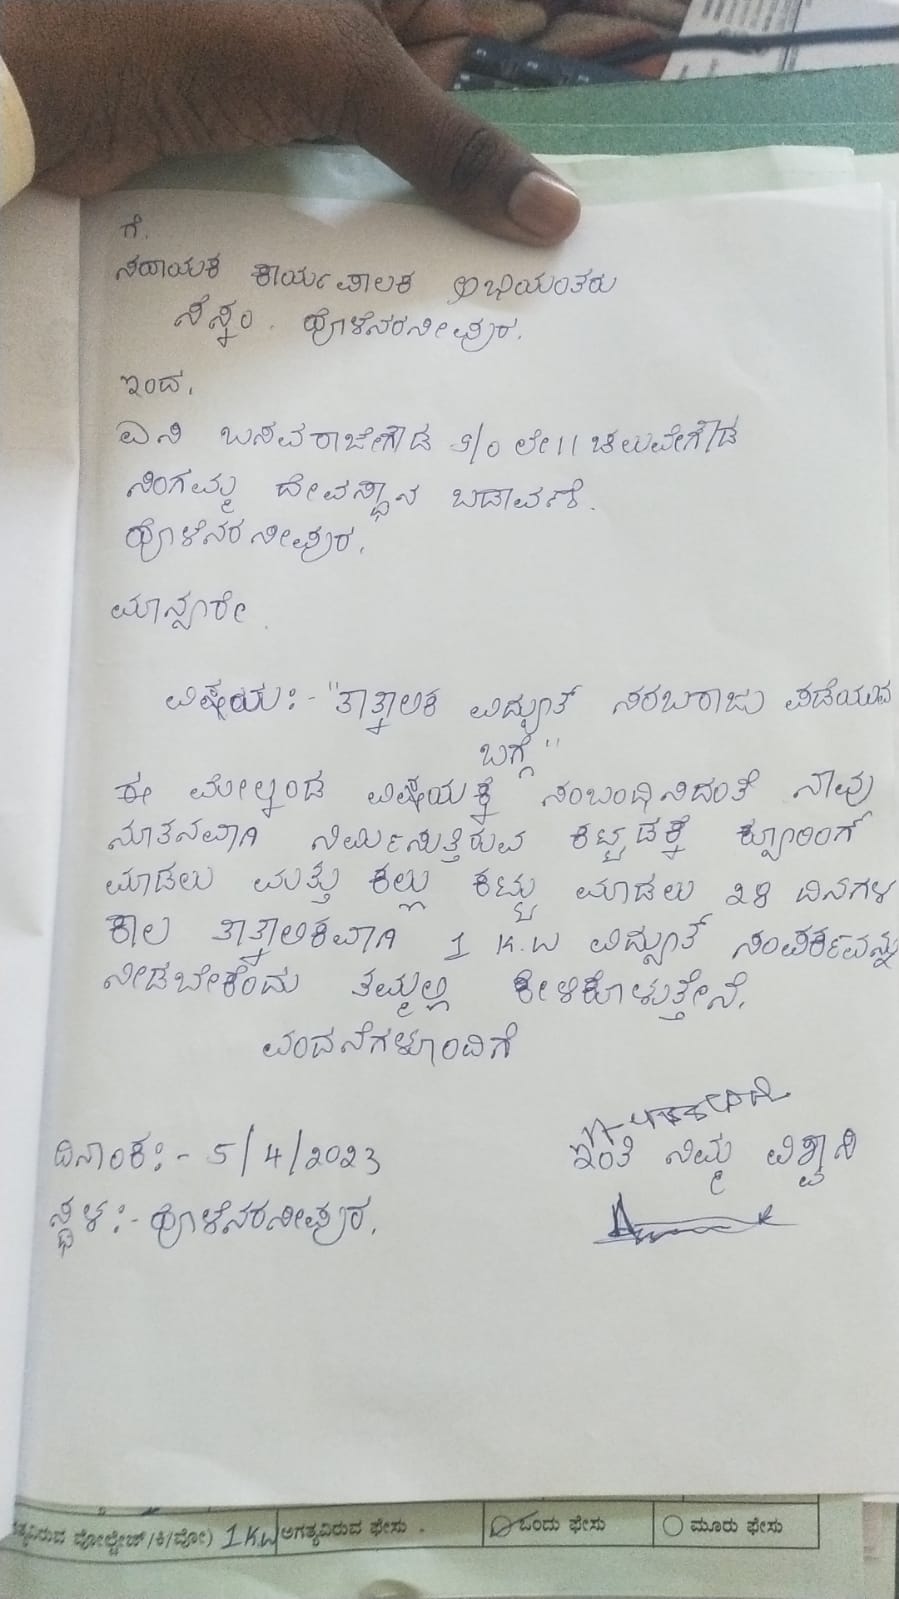 ಗೆ.
ಸಹಾಯಕ ಕಾರ್ಯಪಾಲಕ ಅಭಿಯಂತರು
ಸೆಸ್ಕಂ. ಹೊಳೆನರಸೀಪುರ.
ಇಂದ.
ಎನಿ ಬಸವರಾಜೇಗೌಡ S/o ಲೇ|| ಚಲುವೇಗೌಡ
ಸಿಂಗಮ್ಮ ದೇವಸ್ಥಾನ ಬಡಾವಣೆ.
ಹೊಳೆನರಸೀಪುರ.
ಮಾನ್ಯರೇ.
ವಿಷಯ:- "ತಾತ್ಕಾಲಿಕ ವಿದ್ಯುತ್ ಸರಬರಾಜು ಪಡೆಯುವ
ಬಗ್ಗೆ"
ಈ ಮೇಲ್ಕಂಡ ವಿಷಯಕ್ಕೆ ಸಂಬಂಧಿಸಿದಂತೆ ನಾವು
ನೂತನವಾಗಿ ನಿರ್ಮಿಸುತ್ತಿರುವ ಕಟ್ಟಡಕ್ಕೆ ಕ್ಯೂರಿಂಗ್
ಮಾಡಲು ಮತ್ತು ಕಲ್ಲು ಕಟ್ಟು ಮಾಡಲು 28 ದಿನಗಳ
ಕಾಲ ತಾತ್ಕಾಲಿಕವಾಗಿ 1 K.W ವಿದ್ಯುತ್ ಸಂಪರ್ಕವನ್ನು
ನೀಡಬೇಕೆಂದು ತಮ್ಮಲ್ಲಿ ಕೇಳಿಕೊಳುತ್ತೇನೆ.
ವಂದನೆಗಳೊಂದಿಗೆ
ದಿನಾಂಕ:- 5/4/2023
ಇಂತಿ ನಿಮ್ಮ ವಿಶ್ವಾಸಿ
ಸ್ಥಳ:- ಹೊಳೆನರಸೀಪುರ.
ವೋಲ್ಟೇಜ್/ಕಿ/ವೋ) 1 KW ಅಗತ್ಯವಿರುವ ಫೇಸು . ಒಂದು ಫೇಸು ಮೂರು ಫೇಸು